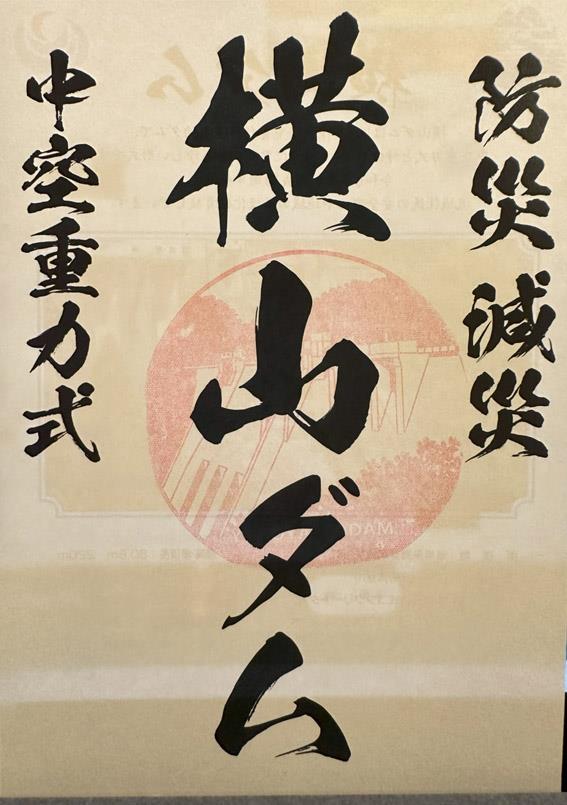 防災減災
横山ダム
中空重力式